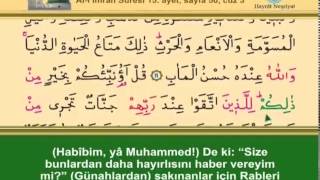 Âl-i İmrân Sûresi 15. âyet, sayfa 50, cüz 3
Hayrât Neşriyat
الْمُسَوَّمَةِ وَالْاَنْعَامِ وَالْحَرْثِ ذٰلِكَ مَتَاعُ الْحَيٰوةِ الدُّنْيَا
وَاللّٰهُ عِنْدَهُ حُسْنُ الْمَاٰبِ قُلْ اَؤُنَبِّئُكُمْ بِخَيْرٍ مِنْ
ذٰلِكُمْ لِلَّذ۪ينَ اتَّقَوْا عِنْدَ رَبِّهِمْ جَنَّاتٌ تَجْر۪ي مِنْ
(Habîbim, yâ Muhammed!) De ki: “Size
bunlardan daha hayırlısını haber vereyim
mi?” (Günahlardan) sakınanlar için Rableri